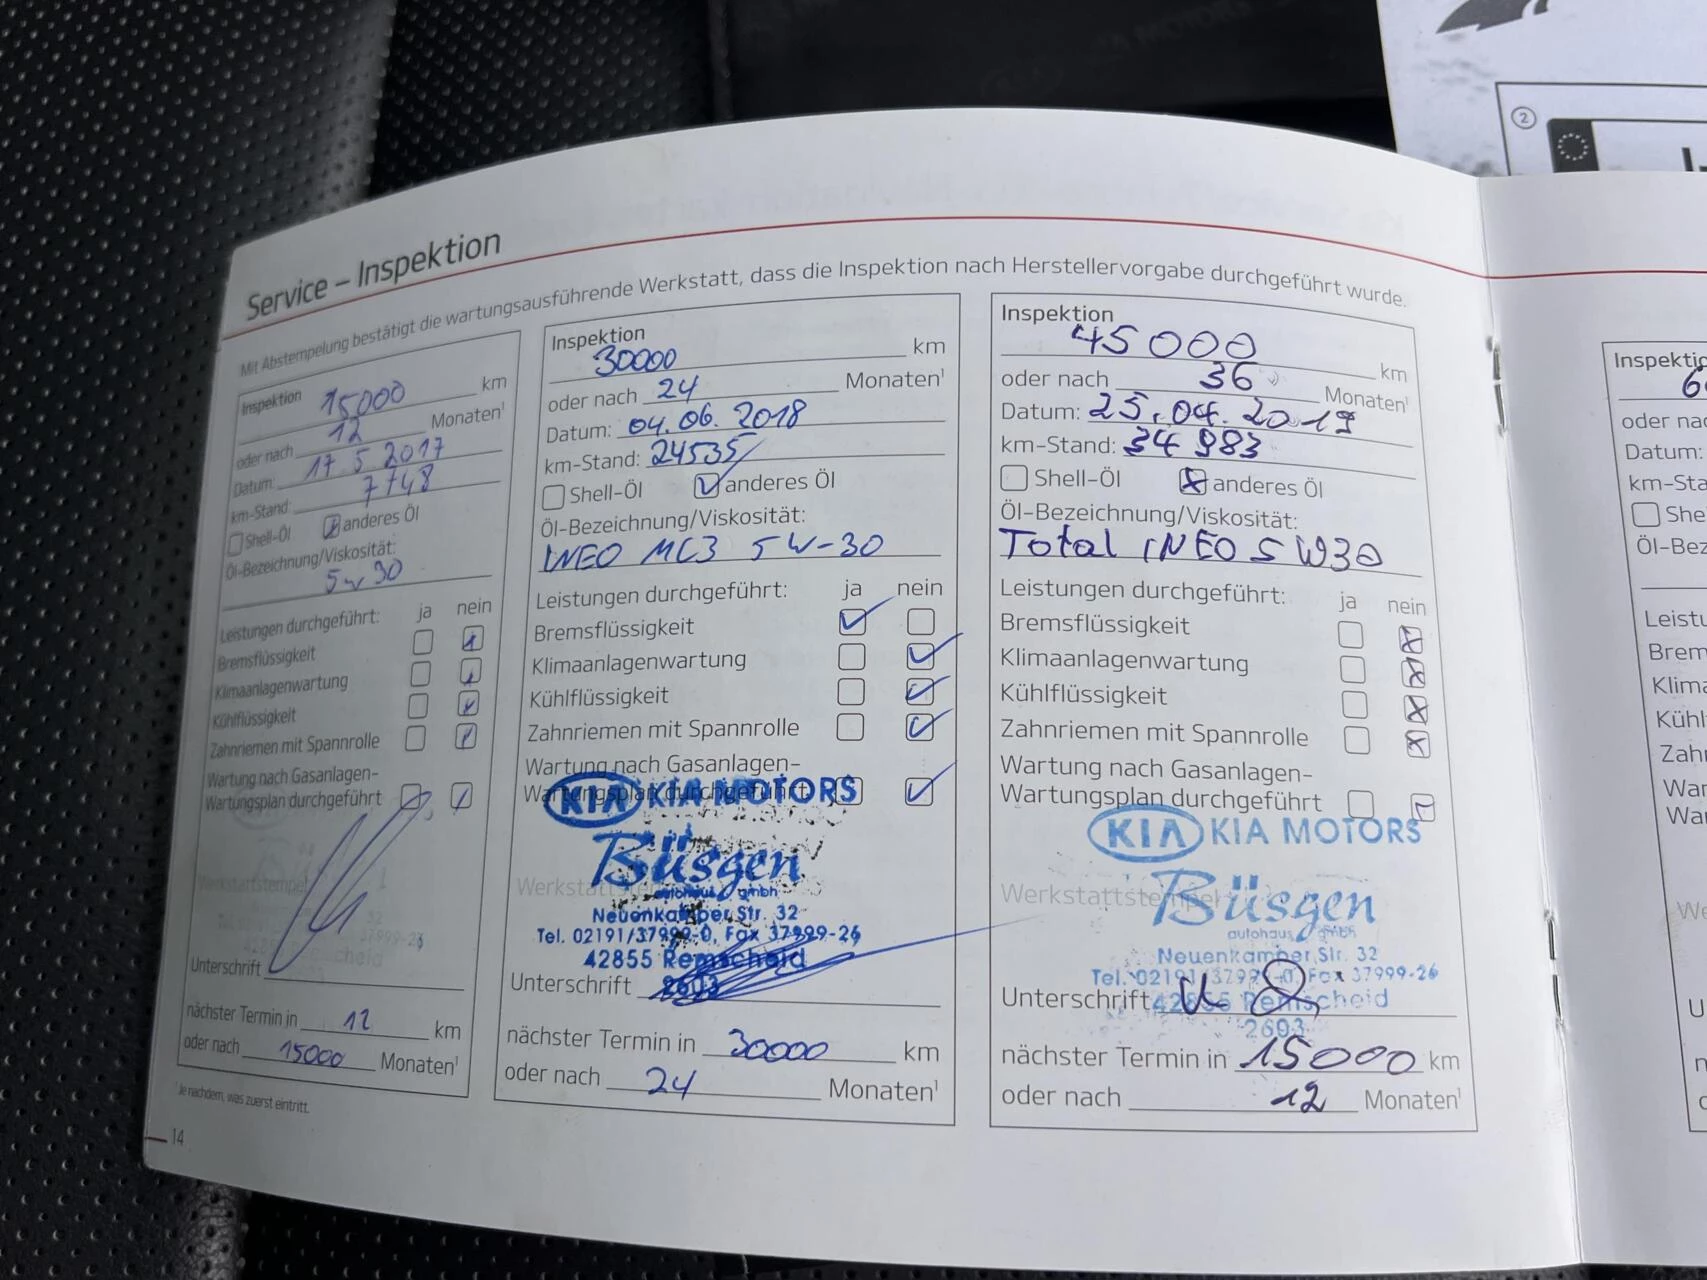 Service – Inspektion
Mit Abstempelung bestätigt die wartungsausführende Werkstatt, dass die Inspektion nach Herstellervorgabe durchgeführt wurde.
Inspektion 15000 km
oder nach 12 Monaten¹
Datum: 17 5 2017
km-Stand: 7748
Shell-Öl anderes Öl
Öl-Bezeichnung/Viskosität:
5w30
Leistungen durchgeführt: ja nein
Bremsflüssigkeit
Klimaanlagenwartung
Kühlflüssigkeit
Zahnriemen mit Spannrolle
Wartung nach Gasanlagen-
Wartungsplan durchgeführt
Werkstattstempel
Unterschrift
nächster Termin in 12 km
oder nach 15000 Monaten¹
¹ Je nachdem, was zuerst eintritt.
14
Inspektion
30000 km
oder nach 24 Monaten¹
Datum: 04.06.2018
km-Stand: 24535
Shell-Öl anderes Öl
Öl-Bezeichnung/Viskosität:
INEO MC3 5W-30
Leistungen durchgeführt: ja nein
Bremsflüssigkeit
Klimaanlagenwartung
Kühlflüssigkeit
Zahnriemen mit Spannrolle
Wartung nach Gasanlagen-
Wartungsplan durchgeführt
KIA KIA MOTORS
Büsgen
autohaus gmbh
Werkstattstempel
Neuenkamper Str. 32
Tel. 02191/37999-0, Fax 37999-26
42855 Remscheid
2603
Unterschrift
nächster Termin in 30000 km
oder nach 24 Monaten¹
Inspektion
45000 km
oder nach 36 Monaten¹
Datum: 25.04.2019
km-Stand: 34983
Shell-Öl anderes Öl
Öl-Bezeichnung/Viskosität:
Total INEO 5W30
Leistungen durchgeführt: ja nein
Bremsflüssigkeit
Klimaanlagenwartung
Kühlflüssigkeit
Zahnriemen mit Spannrolle
Wartung nach Gasanlagen-
Wartungsplan durchgeführt
KIA KIA MOTORS
Werkstattstempel
Büsgen
autohaus gmbh
Neuenkamper Str. 32
Tel. 02191/37999-0, Fax 37999-26
42855 Remscheid
2603
Unterschrift
nächster Termin in 15000 km
oder nach 12 Monaten¹
2
oder
Datum: